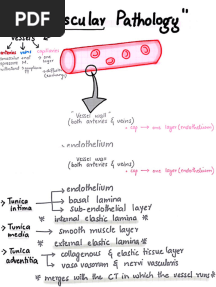 PDF
Vascular Pathology"
vessels
arteries veins capillaries
"Vessel wall"
(both arteries & veins)
* cap → one layer (endothelium)
= endothelium
Vessel wall
(both arteries & veins)
* cap → one layer (endothelium)
endothelium
→ Tunica intima → basal lamina
→ sub-endothelial layer
※ internal elastic lamina ※
→ Tunica media → smooth muscle layer
※ external elastic lamina ※
→ Tunica adventitia → collagenous & elastic tissue layer
→ vaso vasorum & nervi vascularis
※ merges with the CT in which the vessel runs ※